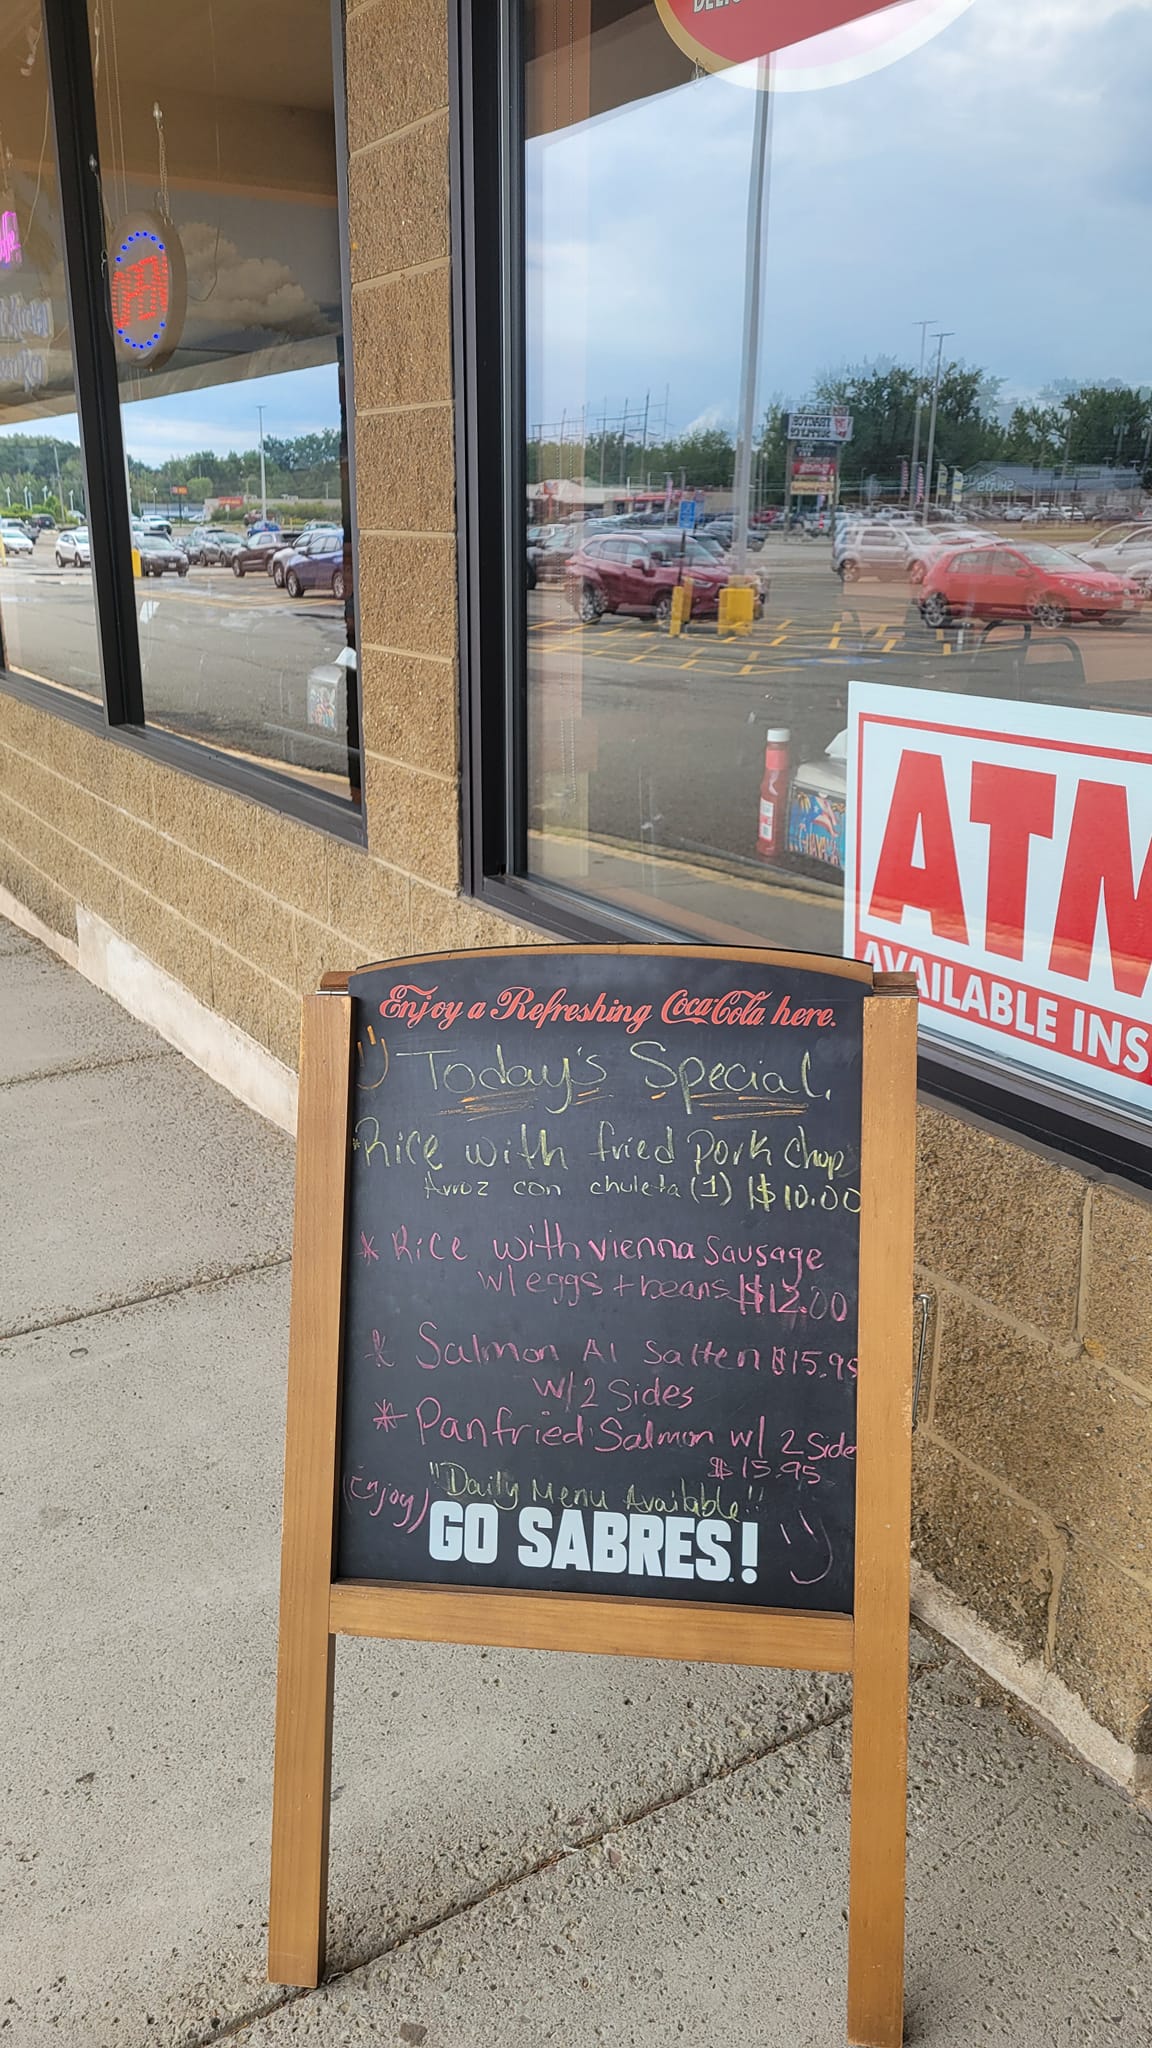 DELIC
OPEN
TRACTOR
SUPPLY CO
ATM
AVAILABLE INS
Enjoy a Refreshing Coca-Cola here.
Today's Special.
*Rice with fried pork chop
Arroz con chuleta (1) $10.00
* Rice with vienna Sausage
w/ eggs + beans $12.00
* Salmon Al Salten $15.95
w/2 Sides
* Pan fried Salmon w/ 2 Side
$15.95
"Daily Menu Available!!
(Enjoy)
GO SABRES!